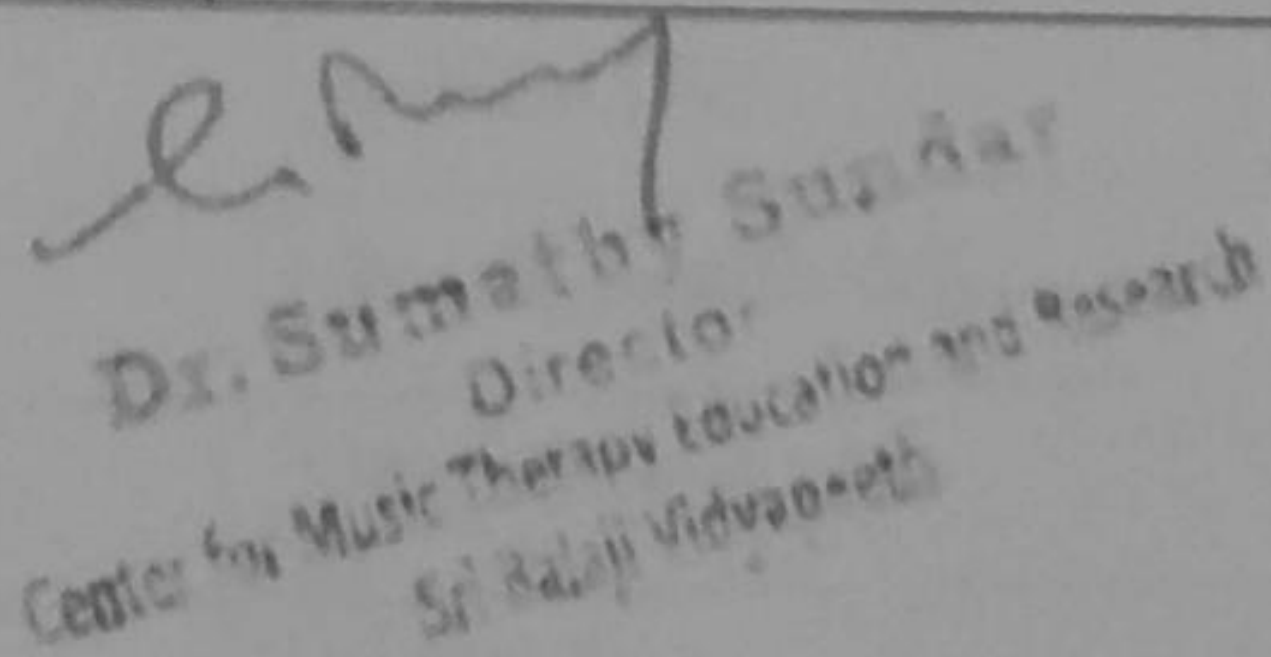 Dr. Sumathy Sundar
Director
Center for Music Therapy Education and Research
Sri Balaji Vidyapeeth